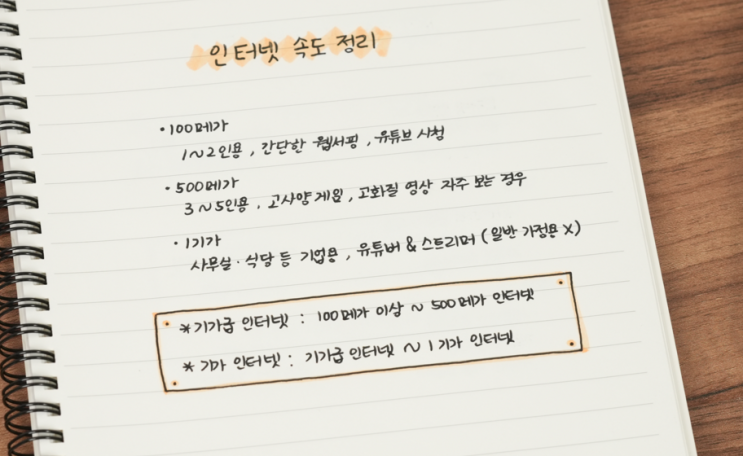 인터넷 속도 정리
• 100메가
1~2인용, 간단한 웹서핑, 유튜브 시청
• 500메가
3~5인용, 고사양게임, 고화질 영상 자주 보는 경우
• 1기가
사무실·식당 등 기업용, 유튜버 & 스트리머 (일반 가정용 X)
* 기가급 인터넷 : 100메가 이상 ~ 500메가 인터넷
* 기가 인터넷 : 기가급 인터넷 ~ 1기가 인터넷